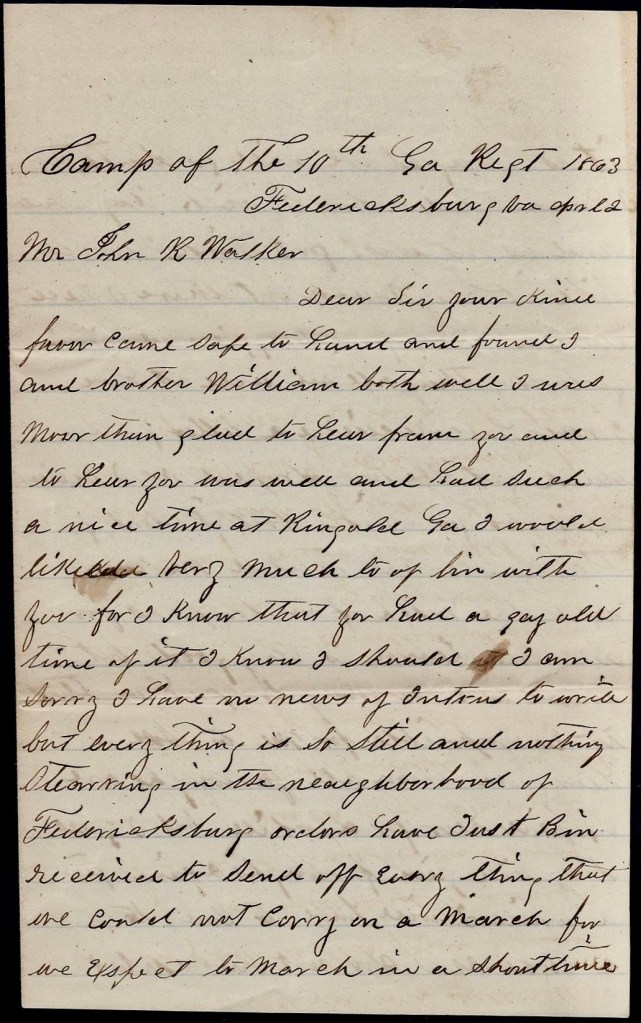 Camp of The 10th Ga Regt 1863
Federicksburg va Aprl 2
Mr John R Walker
Dear Sir your Kind
favor came safe to hand and found I
and brother William both well I was
Moor than glad to hear from you and
to hear you was well and had such
a nice time at Ringold Ga I would
like very much to of bin with
you for I know that you had a gay old
time of it I know I should I am
Sorry I have no news of Intrus to write
but every thing is so still and nothing
Stearring in the neaighborhood of
Federicksburg orders have Just Bin
received to send off Every thing that
we could not Carry on a March for
we Expect to March in a short time